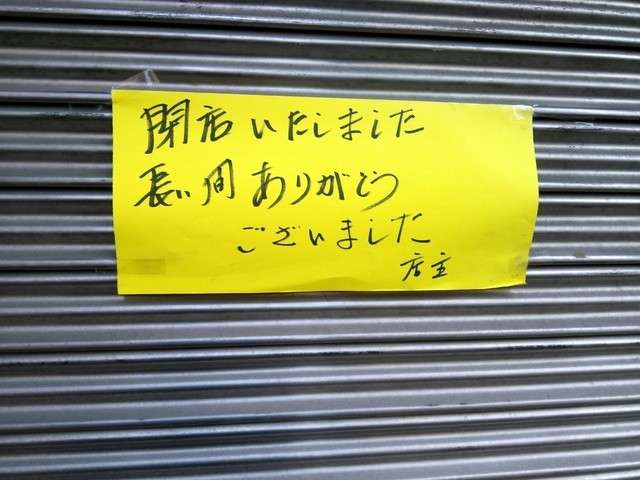 閉店いたしました
長い間ありがとう
ございました
店主